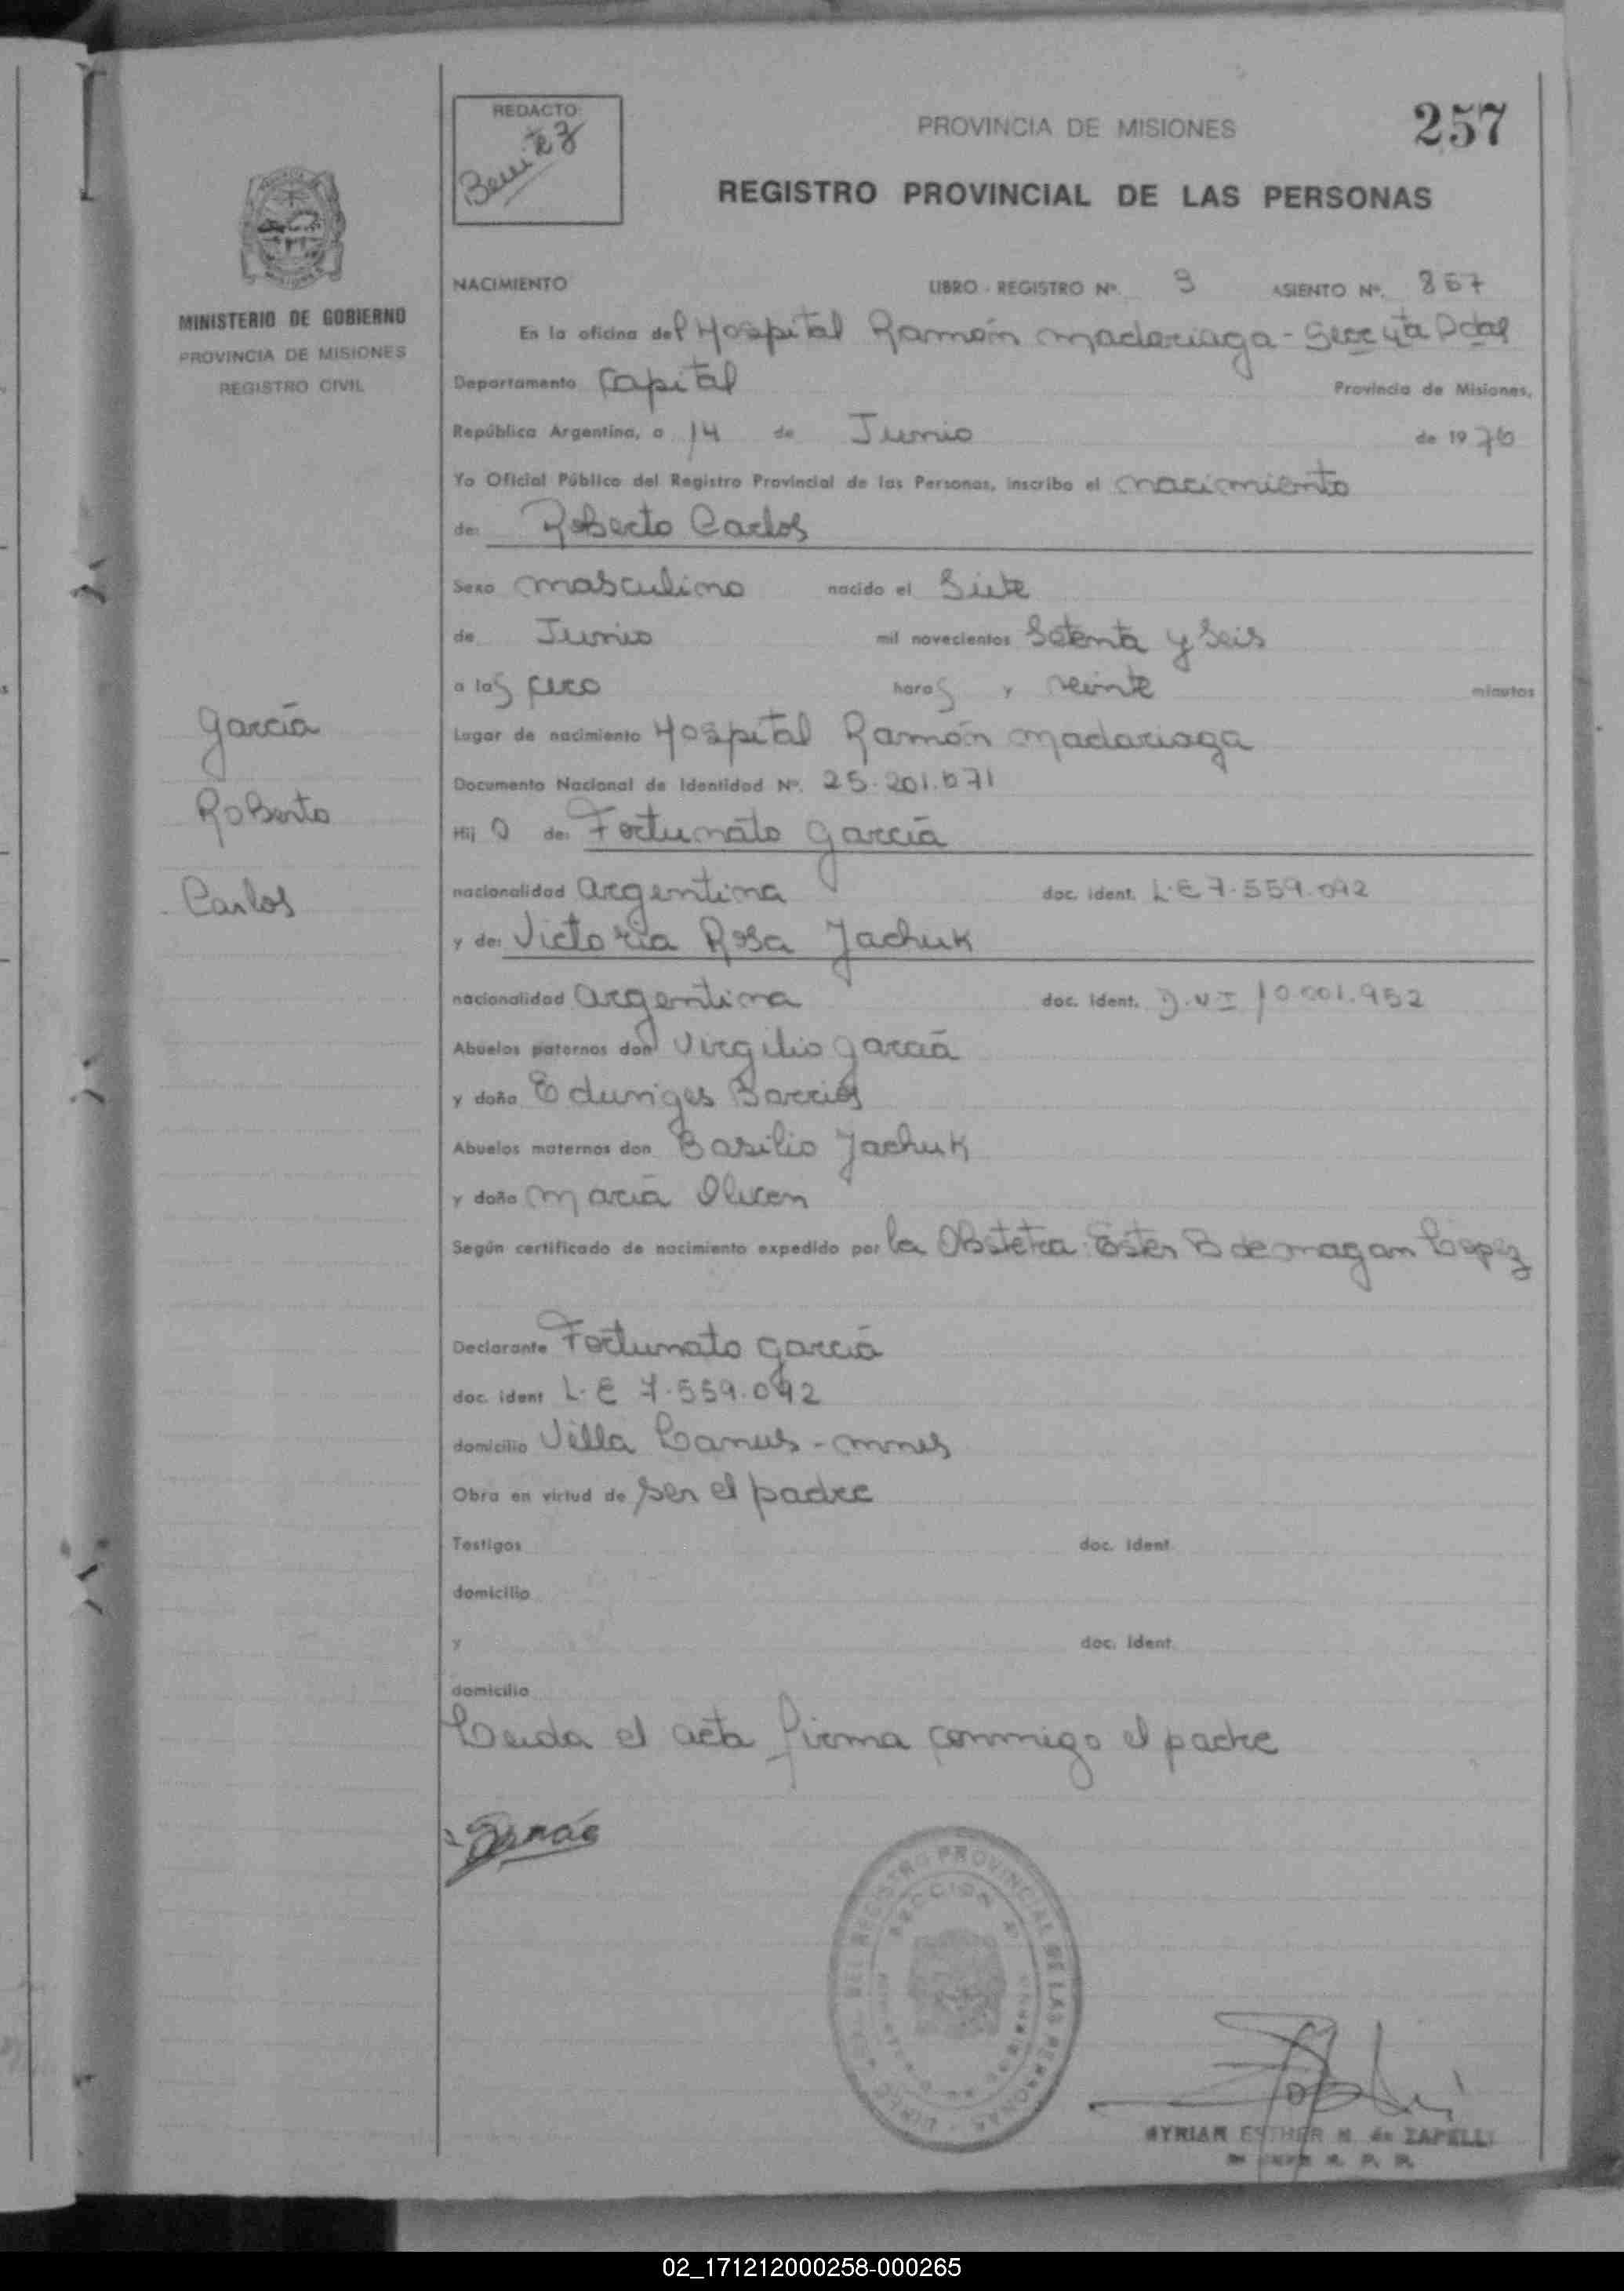 REDACTO:
Benitez
PROVINCIA DE MISIONES
257
REGISTRO PROVINCIAL DE LAS PERSONAS
MINISTERIO DE GOBIERNO
PROVINCIA DE MISIONES
REGISTRO CIVIL
NACIMIENTO LIBRO - REGISTRO Nº. 3 ASIENTO Nº. 857
En la oficina del Hospital Ramón Madariaga - Secc 4ta Dctal
Departamento Capital Provincia de Misiones,
República Argentina, a 14 de Junio de 1976
Yo Oficial Público del Registro Provincial de las Personas, inscribo el nacimiento
de: Roberto Carlos
Sexo masculino nacido el Siete
de Junio mil novecientos Setenta y Seis
a las cero horas y veinte minutos
Lugar de nacimiento Hospital Ramón Madariaga
Documento Nacional de Identidad Nº. 25.201.671
Hij o de: Fortunato García
nacionalidad argentina doc. ident. L.E 7.559.092
y de: Victoria Rosa Jachuk
nacionalidad argentina doc. ident. D.N.I 10.001.952
Abuelos paternos don Virgilio García
y doña Eduviges Barrios
Abuelos maternos don Basilio Jachuk
y doña María
Según certificado de nacimiento expedido por la Obstetra Ester B de Magan Lopez
García
Roberto
Carlos
Declarante Fortunato García
doc. ident L.E 7.559.092
domicilio Villa Lanus - mnes
Obra en virtud de ser el padre
Testigos doc. ident.
domicilio
y doc. ident.
domicilio
Leida el acta firma conmigo el padre
REGISTRO PROVINCIAL DE LAS PERSONAS
MYRIAN ESTHER N. de ZAPELLI
02_171212000258-000265